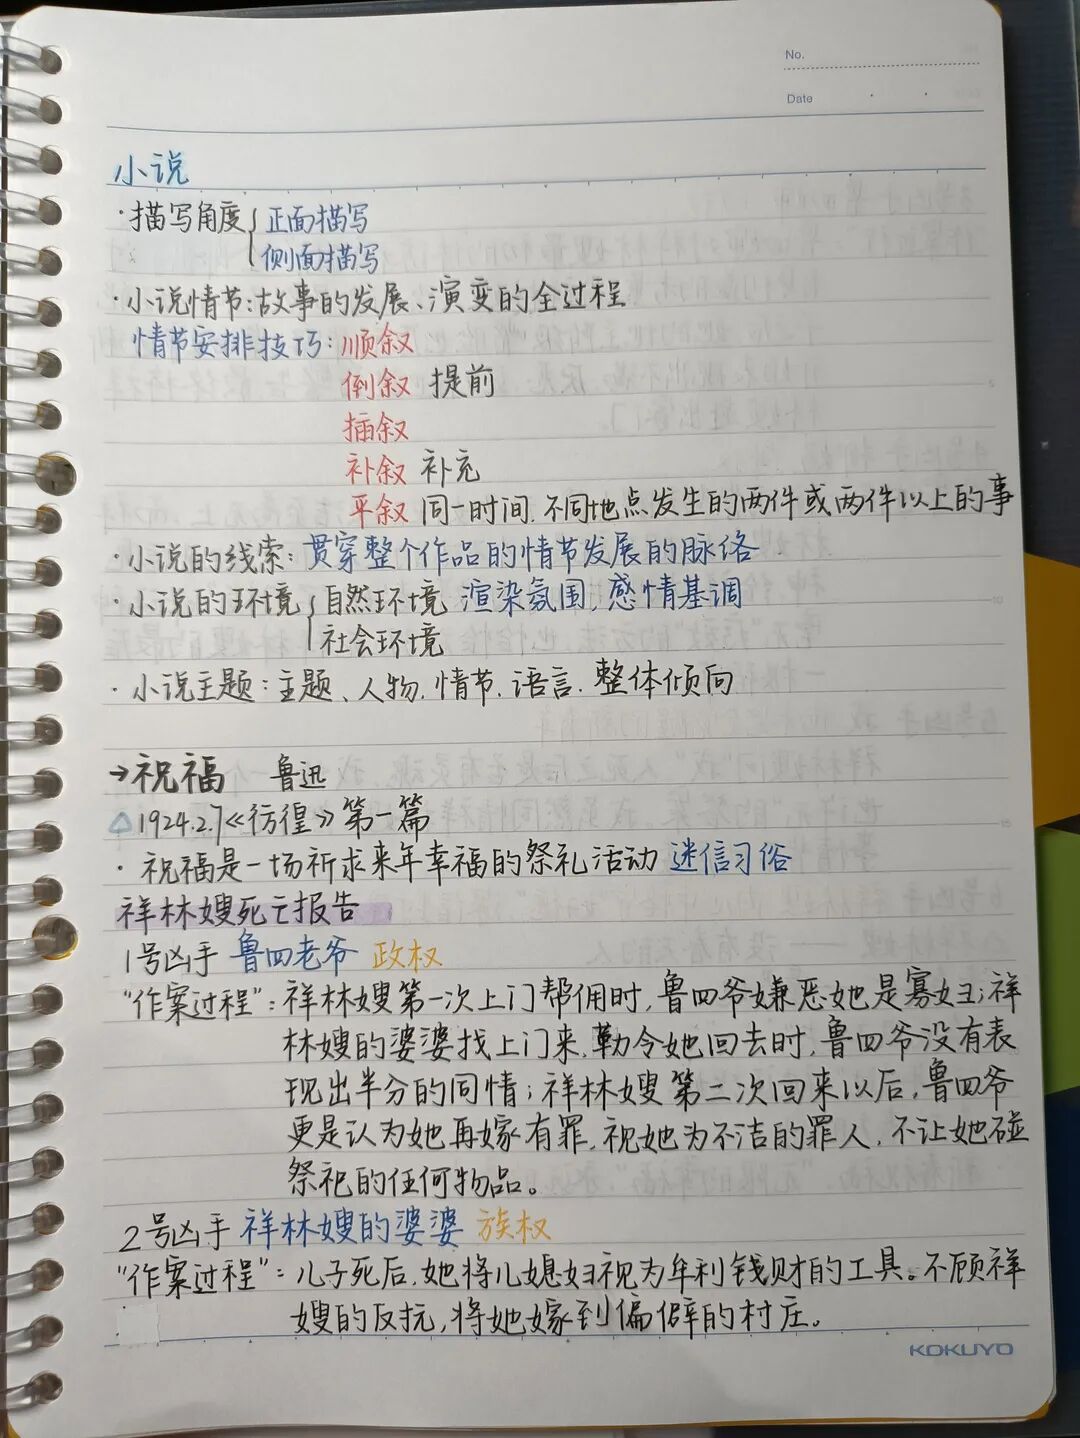 No.
Date
小说
·描写角度{正面描写
侧面描写
·小说情节:故事的发展、演变的全过程
情节安排技巧:顺叙
倒叙 提前
插叙
补叙 补充
平叙 同一时间.不同地点发生的两件或两件以上的事
·小说的线索:贯穿整个作品的情节发展的脉络
·小说的环境{自然环境 渲染氛围,感情基调
社会环境
·小说主题:主题、人物.情节.语言.整体倾向
→祝福 鲁迅
△1924.2.7《彷徨》第一篇
·祝福是一场祈求来年幸福的祭礼活动 迷信习俗
祥林嫂死亡报告
1号凶手 鲁四老爷 政权
"作案过程":祥林嫂第一次上门帮佣时,鲁四爷嫌恶她是寡妇;祥
林嫂的婆婆找上门来,勒令她回去时,鲁四爷没有表
现出半分的同情;祥林嫂第二次回来以后,鲁四爷
更是认为她再嫁有罪,视她为不洁的罪人,不让她碰
祭祀的任何物品。
2号凶手 祥林嫂的婆婆 族权
"作案过程":儿子死后,她将儿媳妇视为牟利钱财的工具。不顾祥
嫂的反抗,将她嫁到偏僻的村庄。
KOKUYO